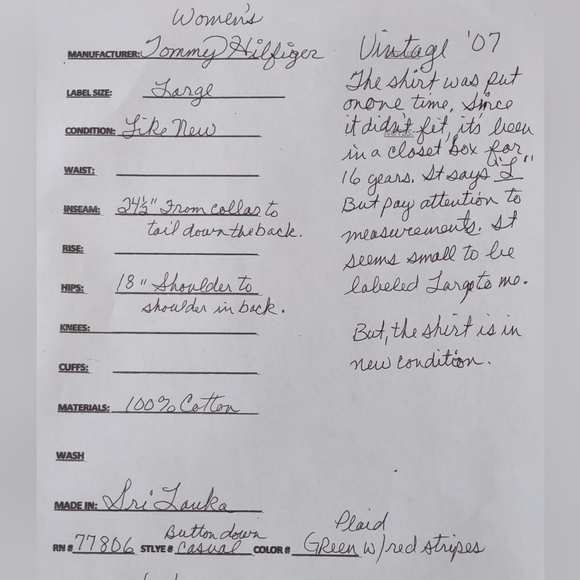 Women's
MANUFACTURER: Tommy Hilfiger
LABEL SIZE: Large
CONDITION: Like New
WAIST:
INSEAM: 24½" From collar to
tail down the back.
RISE:
HIPS: 18" Shoulder to
shoulder in back.
KNEES:
CUFFS:
MATERIALS: 100% Cotton
WASH
MADE IN: Sri Lanka
Button down
RN # 77806 STLYE # Casual COLOR # Green w/red stripes
Plaid
Vintage '07
The shirt was put
on one time. Since
it didn't fit, it's been
in a closet box for
16 years. It says "L"
But pay attention to
measurements. It
seems small to be
labeled Large to me.
But, the shirt is in
new condition.